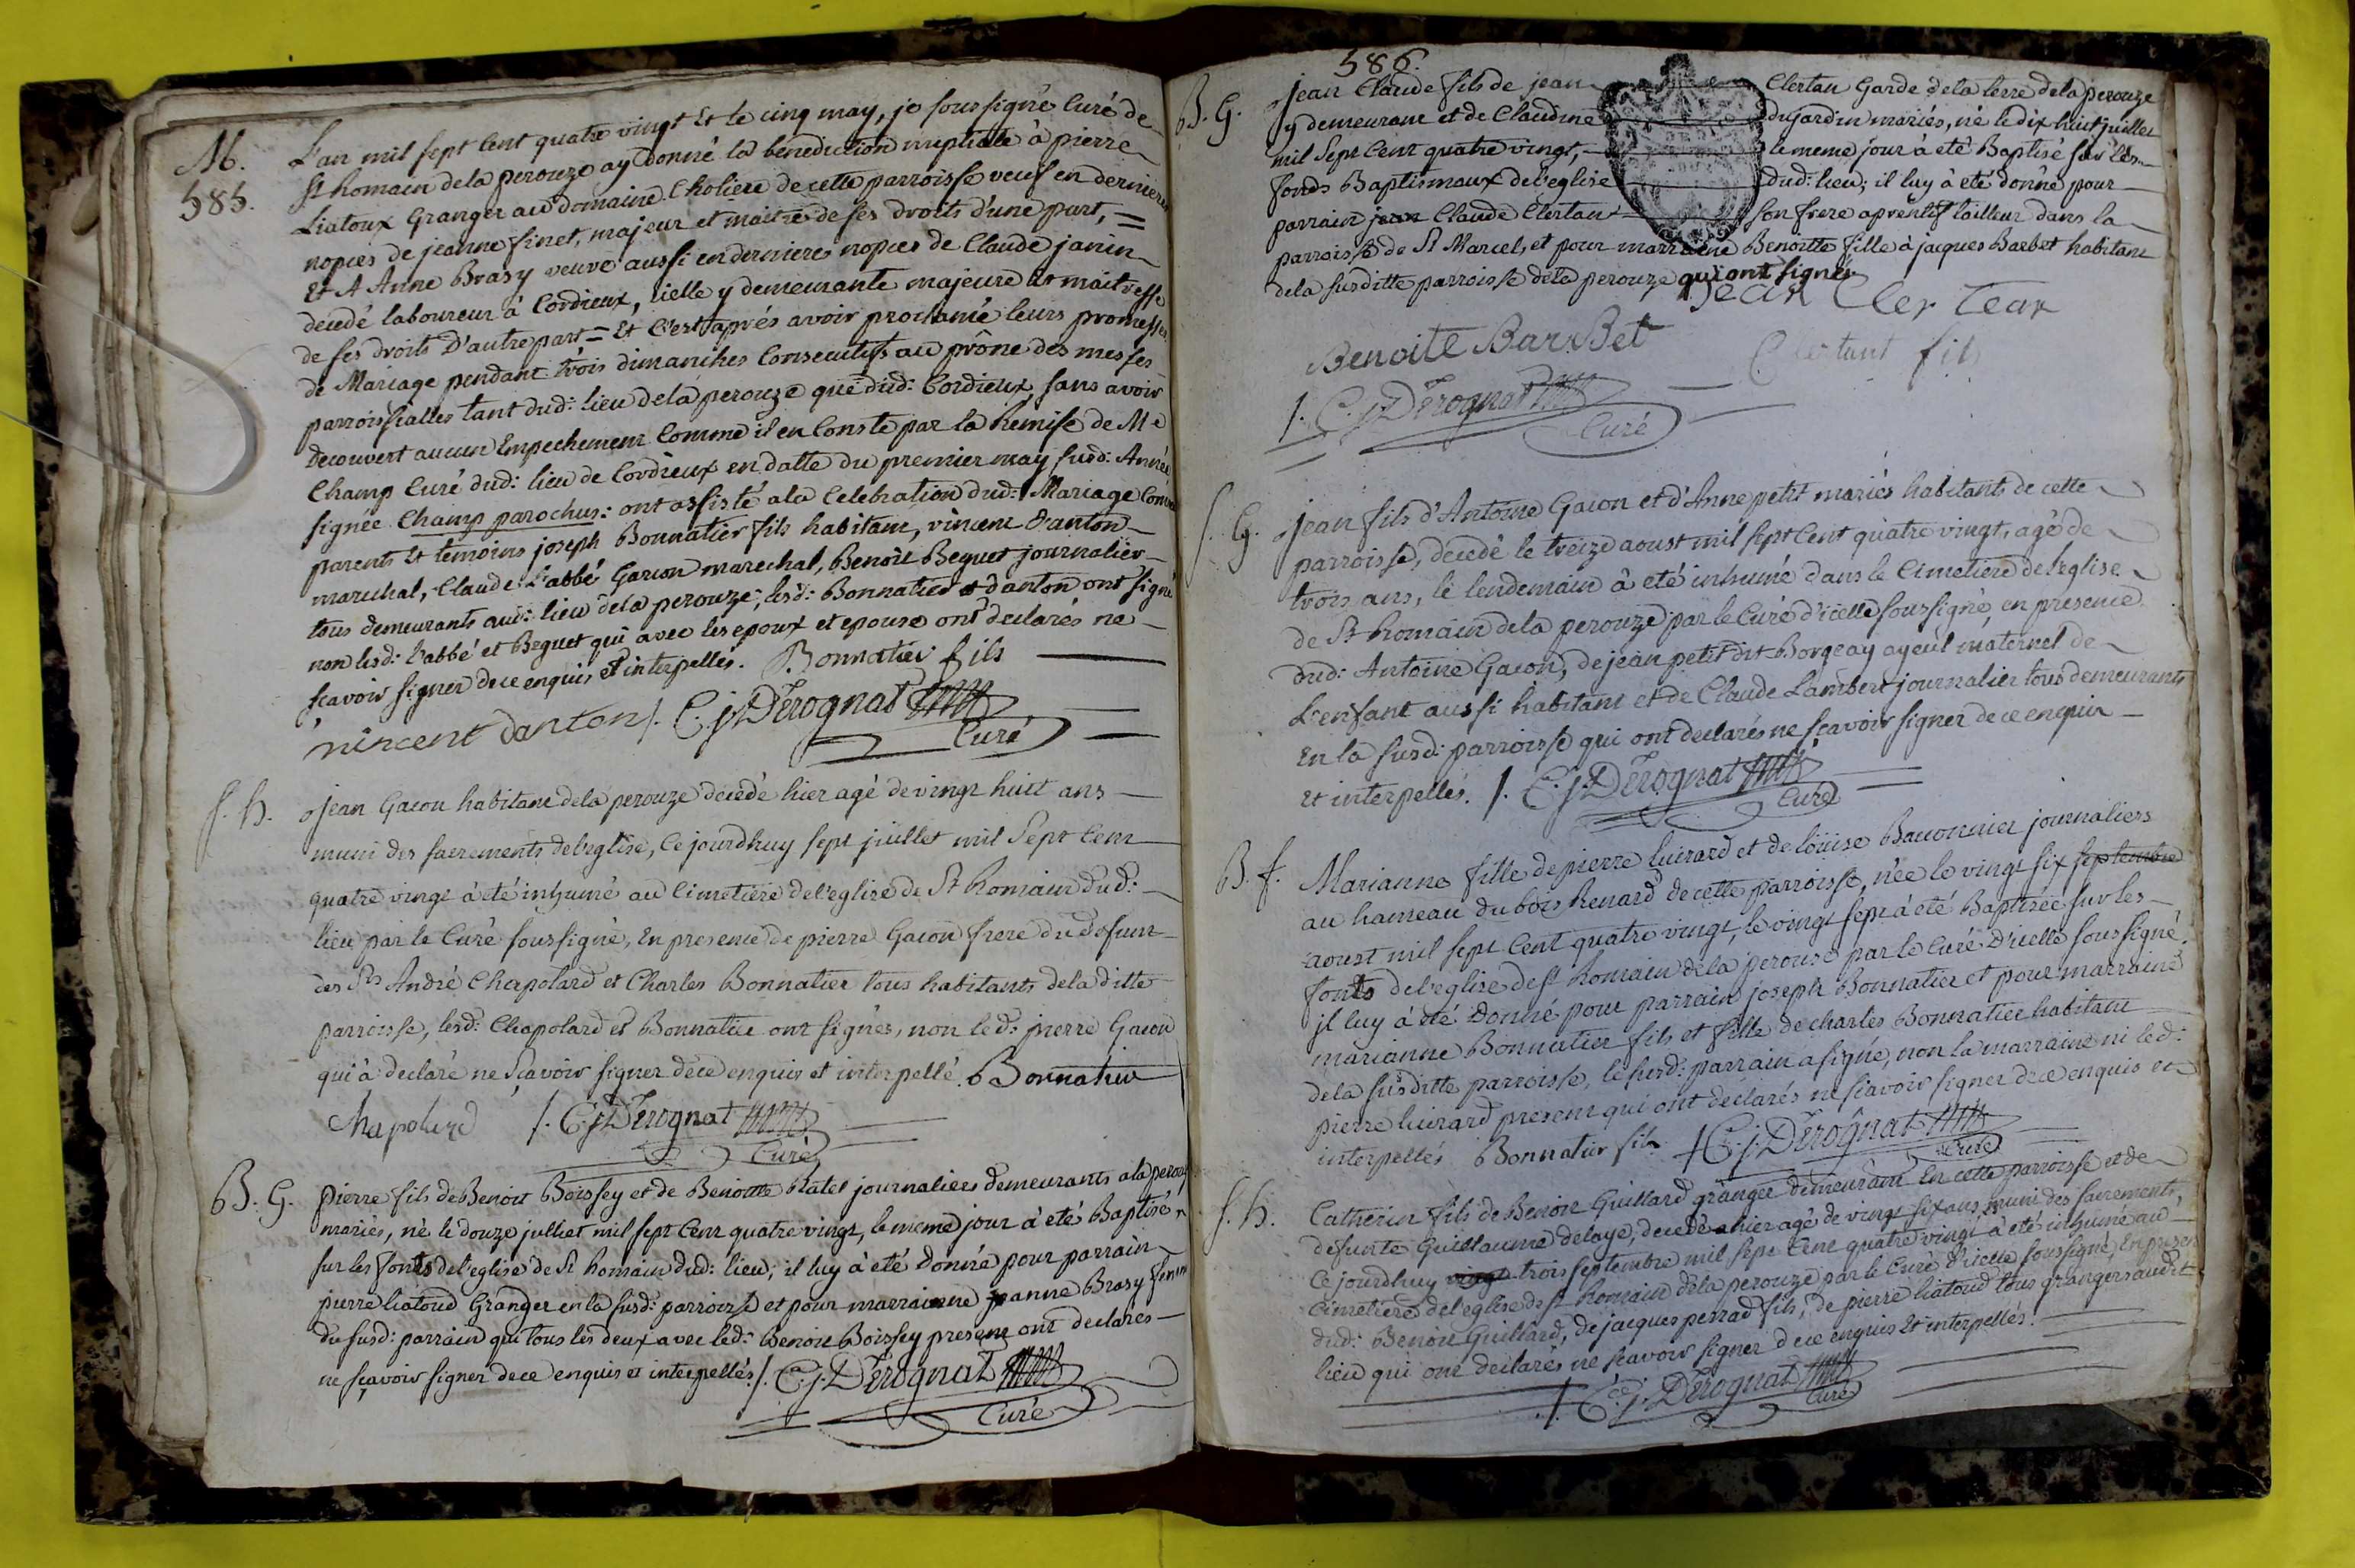 M.
585.
L'an mil sept Cent quatre vingt Et le cinq may, je soussigné Curé de
St Romain dela perouze ay donné la benediction nuptiale à pierre
Liatoux Granger au domaine Choliere de cette parroisse veuf en dernieres
nopces de jeanne finet, majeur et maitre de ses droits d'une part, =
Et A Anne Brasy veuve aussi en dernieres nopces de Claude janin
decedé laboureur à Cordieux, icelle y demeurante majeure et maitresse
de ses droits D'autre part = Et C'est aprés avoir proclamé leurs promesses
de Mariage pendant trois dimanches Consecutifs au prône des messes
parroissialles tant dud: lieu dela perouze que dud: Cordieux, sans avoir
decouvert aucun Empechement Comme il en Conste par la Remise de Me
Champ Curé dud: lieu de Cordieux en datte du premier may susd: Année
signée Champ parochus: ont assisté ala Celebration dud: Mariage Comme
parents Et temoins joseph Bonnatier fils habitant, vincent Danton
marechal, Claude L'abbé Garcon marechal, Benoit Beguet journalier
tous demeurants aud: lieu dela perouze, lesd: Bonnatier et danton ont signé
non lesd: l'abbé et Beguet qui avec les epoux et epouse ont declarés ne
scavoir signer de ce enquis et interpellés. Bonnatier fils
vincent danton /. C. j. Derognat
Curé
S. h.
Jean Gacon habitant dela perouze decedé hier agé de vingt huit ans
muni des sacrements de l'eglise, Ce jourdhuy sept juillet mil Sept Cent
quatre vingt à été inhumé au Cimetiere de l'eglise de St Romain dud:
lieu par le Curé soussigné, En presence de pierre Gacon frere du defunt
des Srs André Chapolard et Charles Bonnatier tous habitants dela ditte
parroisse, lesd: Chapolard et Bonnatier ont signés, non led: pierre Gacon
qui à declaré ne Scavoir signer de ce enquis et interpellé. Bonnatier
Chapolard /. C. j. Derognat
Curé
B. G.
pierre fils de Benoit Boissey et de Benoitte Platel journaliers demeurants ala perouze
mariés, né le douze julliet mil sept Cent quatre vingt, le meme jour à eté Baptisé
sur les fonts de l'eglise de St Romain dud: lieu; il luy à eté donné pour parrain
pierre liatoud Granger en la susd: parroisse et pour marrainne anne Brasy femme
du susd: parrain qui tous les deux avec led: Benoit Boissey present ont declarés
ne sçavoir signer de ce enquis et interpellés /. C. j. Derognat
Curé
586.
B. G.
Jean Claude fils de jean Clertan Garde dela terre dela perouze
y demeurant et de Claudine dujardin mariés, né le dix huit juillet
mil Sept Cent quatre vingt, le meme jour à eté Baptisé sur les
fonds Baptismaux de l'eglise dud: lieu; il luy à eté donné pour
parrain jean Claude Clertan son frere aprentif tailleur dans la
parroisse de St Marcel, et pour marraine Benoitte fille à jacques Barbet habitant
dela susditte parroisse dela perouze qui ont signés
Jean Cler Tean
Benoite BarBet
Clertant fils
/. C. j. Derognat
Curé
S. G.
Jean fils d'Antoine Gacon et d'Anne petit mariés habitants de cette
parroisse, decedé le treize aoust mil sept Cent quatre vingt, agé de
trois ans, le lendemain à eté inhumé dans le Cimetiere de l'eglise
de St Romain dela perouze par le Curé d'icelle soussigné, en presence
dud: Antoine Gacon, de jean petit dit Borgeay ayeul maternel de
L'enfant aussi habitant et de Claude Lambert journalier tous demeurants
En la susd: parroisse qui ont declarés ne scavoir signer de ce enquis
Et interpellés. /. C. j. Derognat
Curé
B. f.
Marianne fille de pierre luirard et de loüise Bauonnier journaliers
au hameau du bois Renard de cette parroisse, née le vingt six septembre
aoust mil sept Cent quatre vingt, le vingt sept à eté Baptisée sur les
fonts de l'eglise de St Romain dela perouse par le Curé D'icelle soussigné.
jl luy à eté Donné pour parrain joseph Bonnatier et pour marraine
marianne Bonnatier fils et fille de charles Bonnatier habitant
dela susditte parroisse, le susd: parrain a signé, non la marraine ni led:
pierre luirard present qui ont declarés ne scavoir signer de ce enquis et
interpellés Bonnatier fils /. C. j. Derognat
Curé
S. h.
Catherin fils de Benoit Guillard granger demeurant En cette parroisse et de
defunte Guillaume delaye, decedé hier agé de vingt six ans muni des sacrements,
Ce jourdhuy vingt trois septembre mil sept Cent quatre vingt à eté inhumé au
Cimetiere de l'eglise de St Romain dela perouze par le Curé d'icelle soussigné, En presence
dud: Benoit Guillard, de jacques perrad fils, de pierre liatoud tous grangers audit
lieu qui ont declarés ne scavoir signer de ce enquis Et interpellés.
/. C. j. Derognat
Curé